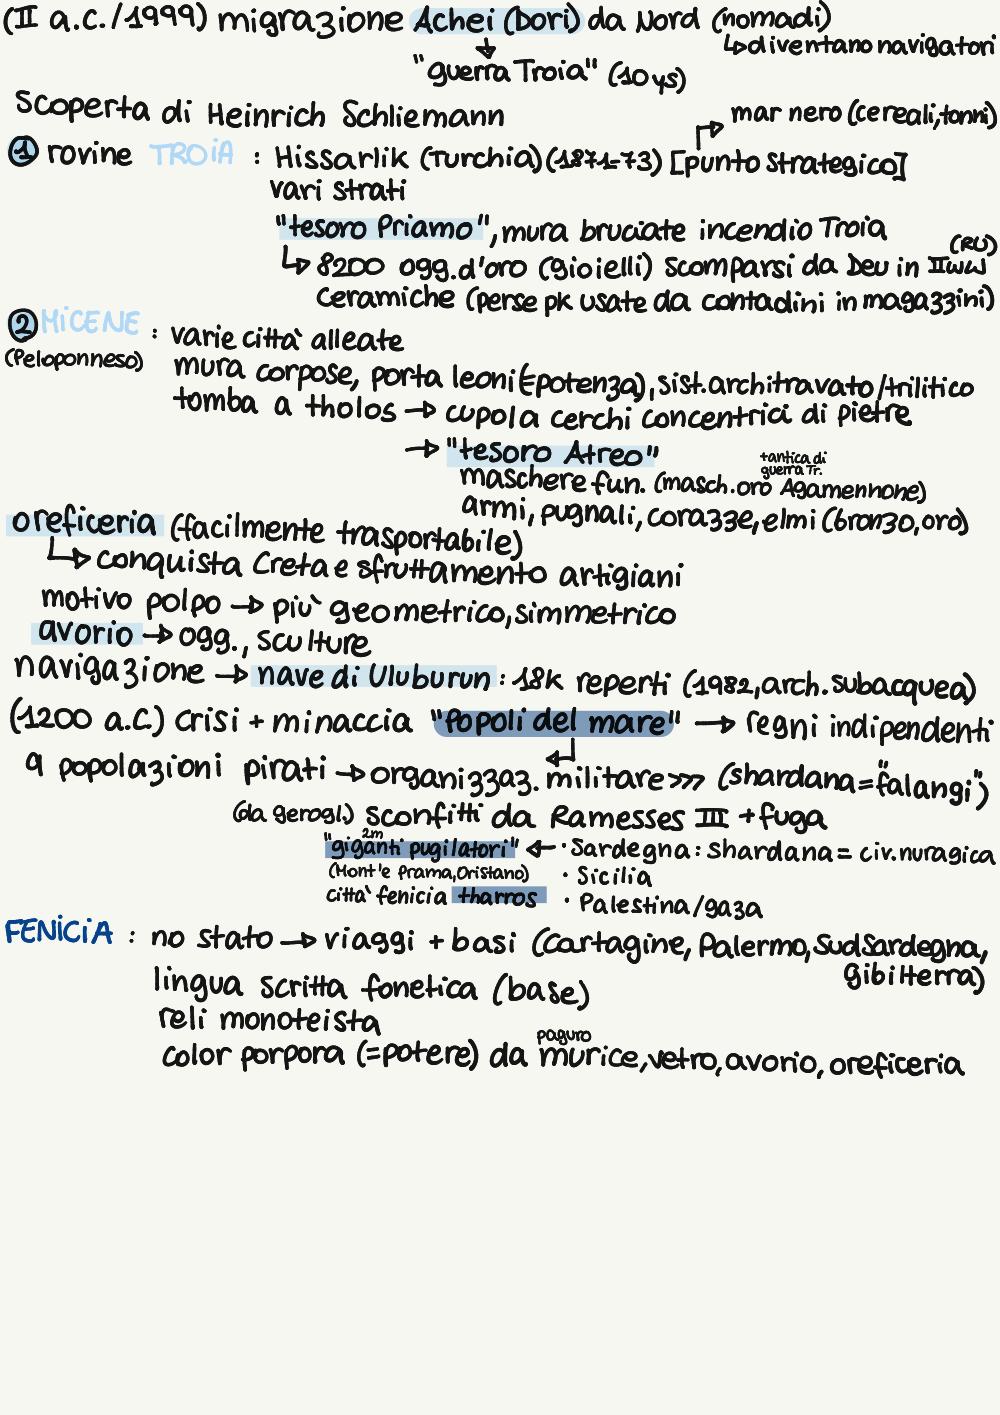 (II a.c./1999) migrazione Achei (Dori) da Nord (nomadi)
↳ diventano navigatori
"guerra Troia" (10 ys)
Scoperta di Heinrich Schliemann
mar nero (cereali, tonni)
1 rovine TROIA : Hissarlik (Turchia) (1871-73) [punto strategico]
vari strati
"tesoro Priamo", mura bruciate incendio Troia
(RU)
↳ 8200 ogg. d'oro (gioielli) scomparsi da Deu in IIWW
ceramiche (perse pk usate da contadini in magazzini)
2 MICENE : varie città alleate
(Peloponneso)
mura corpose, porta leoni (=potenza), sist. architravato/trilitico
tomba a tholos → cupola cerchi concentrici di pietre
→ "tesoro Atreo"
+antica di
guerra Tr.
maschere fun. (masch. oro Agamennone)
armi, pugnali, corazze, elmi (bronzo, oro)
oreficeria (facilmente trasportabile)
↳ conquista Creta e sfruttamento artigiani
motivo polpo → più geometrico, simmetrico
avorio → ogg., sculture
navigazione → nave di Uluburun : 18k reperti (1982, arch. subacquea)
(1200 a.C.) crisi + minaccia "popoli del mare" → regni indipendenti
9 popolazioni pirati → organizzaz. militare >>> (shardana = "falangi")
(da gerogl.) sconfitti da Ramesses III + fuga
2m
"giganti pugilatori" ← · Sardegna: shardana = civ. nuragica
(Mont'e prama, Oristano) · Sicilia
città fenicia tharros · Palestina/gaza
FENICIA : no stato → viaggi + basi (Cartagine, Palermo, Sud Sardegna,
Gibilterra)
lingua scritta fonetica (base)
reli monoteista
paguro
color porpora (=potere) da murice, vetro, avorio, oreficeria